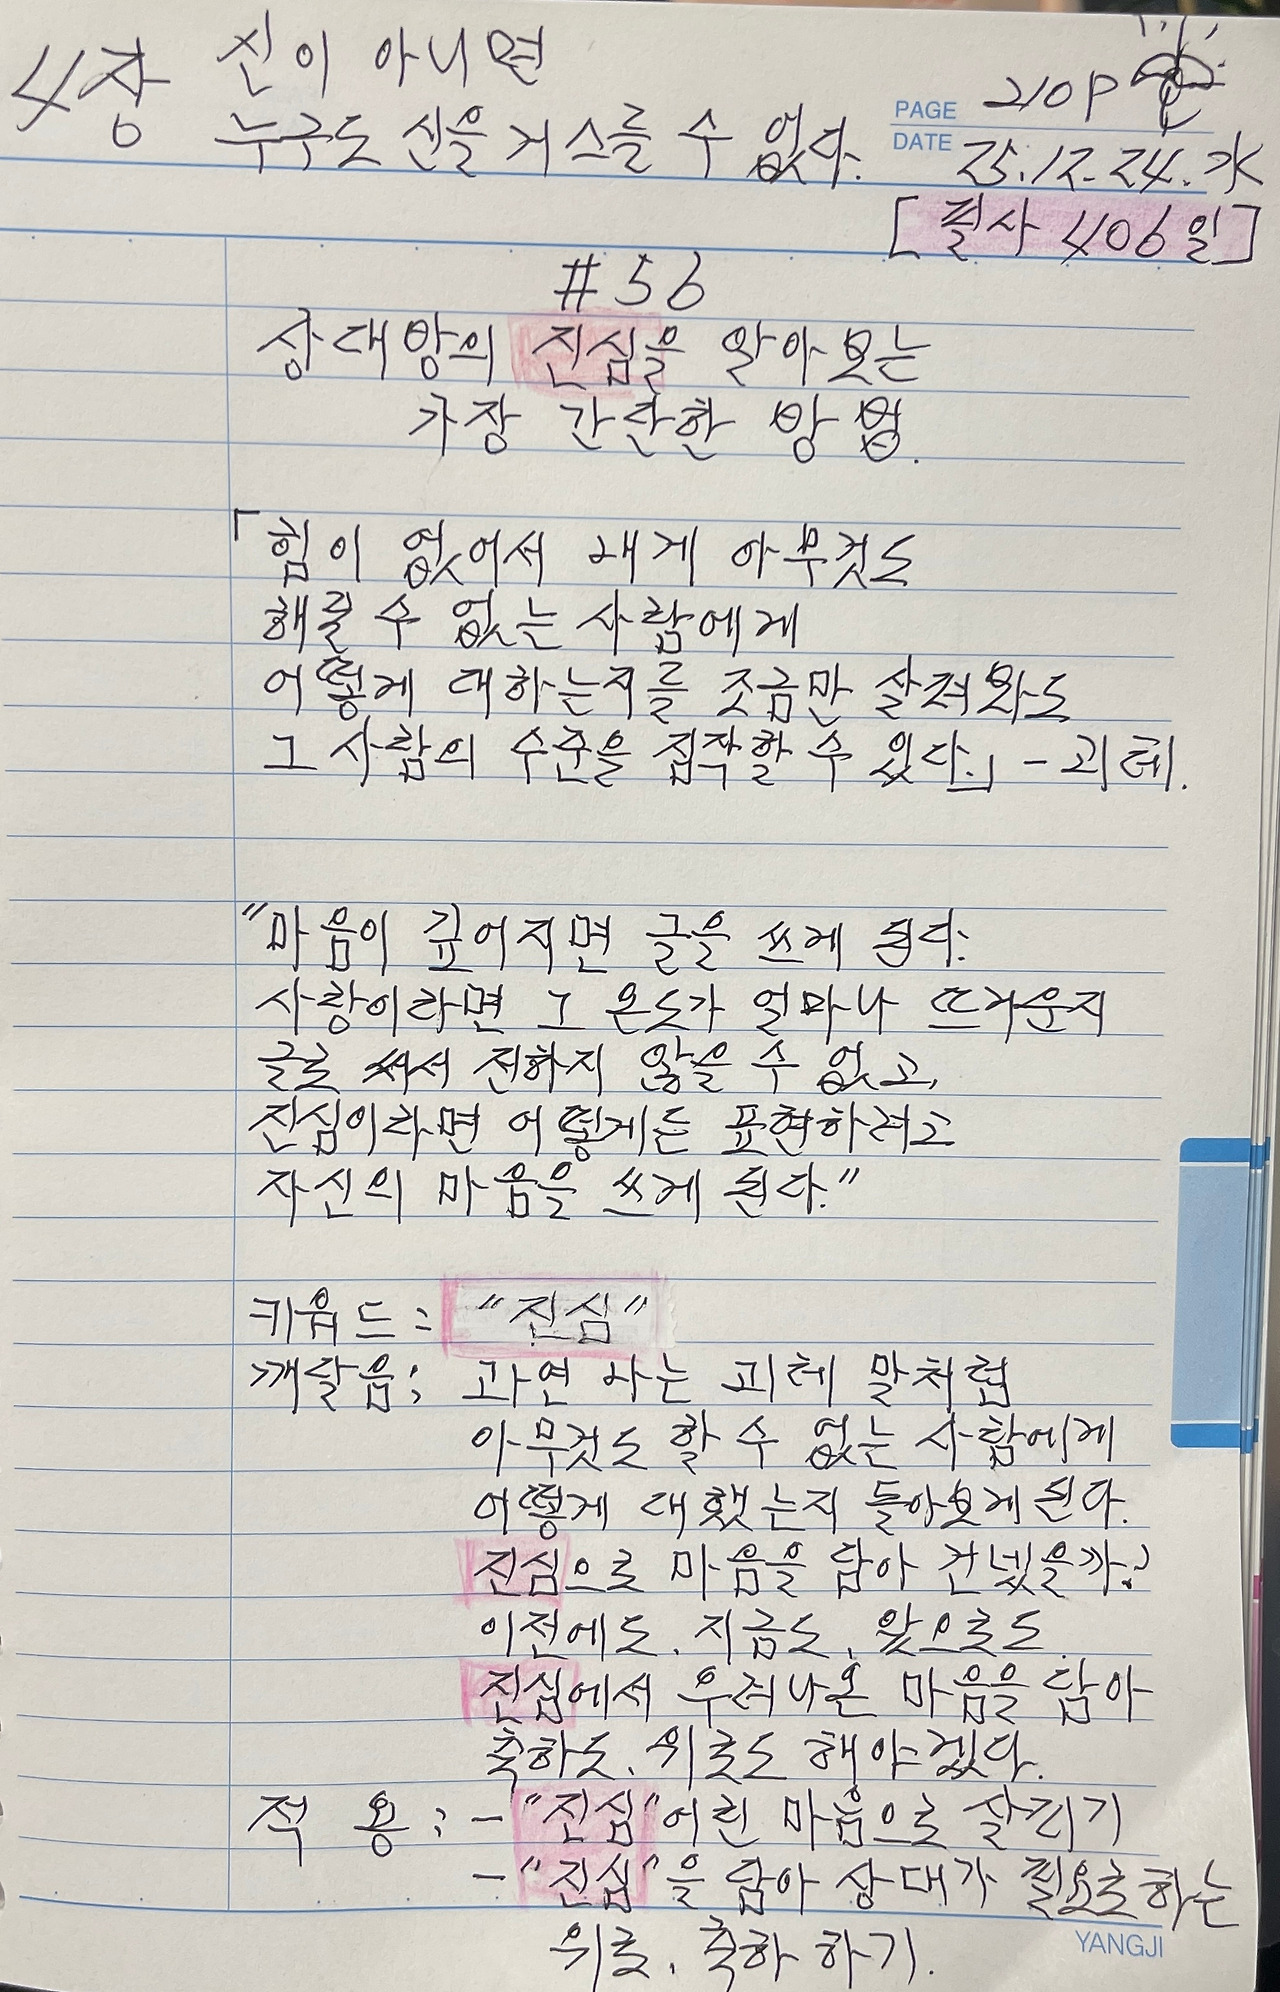 4장 신이 아니면
누구도 신을 거스를 수 없다.
PAGE 210P
DATE 25.12.24.水
[필사 406일]
#56
상대방의 진심을 알아보는
가장 간단한 방법.
「힘이 없어서 내게 아무것도
해줄 수 없는 사람에게
어떻게 대하는지를 조금만 살펴봐도
그 사람의 수준을 짐작할 수 있다.」 - 괴테.
"마음이 깊어지면 글을 쓰게 된다.
사랑이라면 그 온도가 얼마나 뜨거운지
글로 써서 전하지 않을 수 없고,
진심이라면 어떻게든 표현하려고
자신의 마음을 쓰게 된다."
키워드: "진심"
깨달음: 과연 나는 괴테 말처럼
아무것도 할 수 없는 사람에게
어떻게 대했는지 돌아보게 된다.
진심으로 마음을 담아 건넸을까?
이전에도, 지금도, 앞으로도
진심에서 우러나온 마음을 담아
축하도, 위로도 해야겠다.
적용: - "진심"어린 마음으로 살피기
- "진심"을 담아 상대가 필요로하는
위로, 축하 하기.
YANGJI